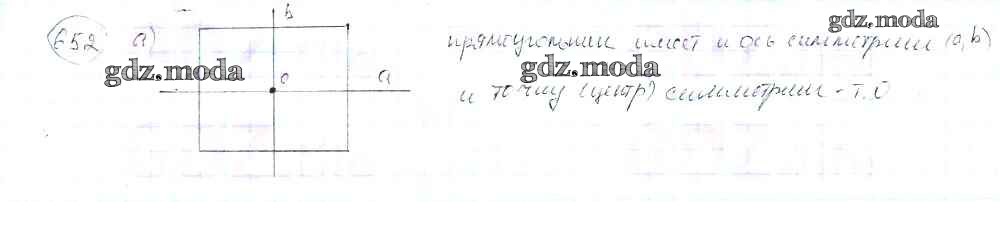 652 а) b
прямоугольник имеет и ось симметрии (а, b)
и точку (центр) симметрии - т. О
о a
gdz.moda
gdz.moda
gdz.moda